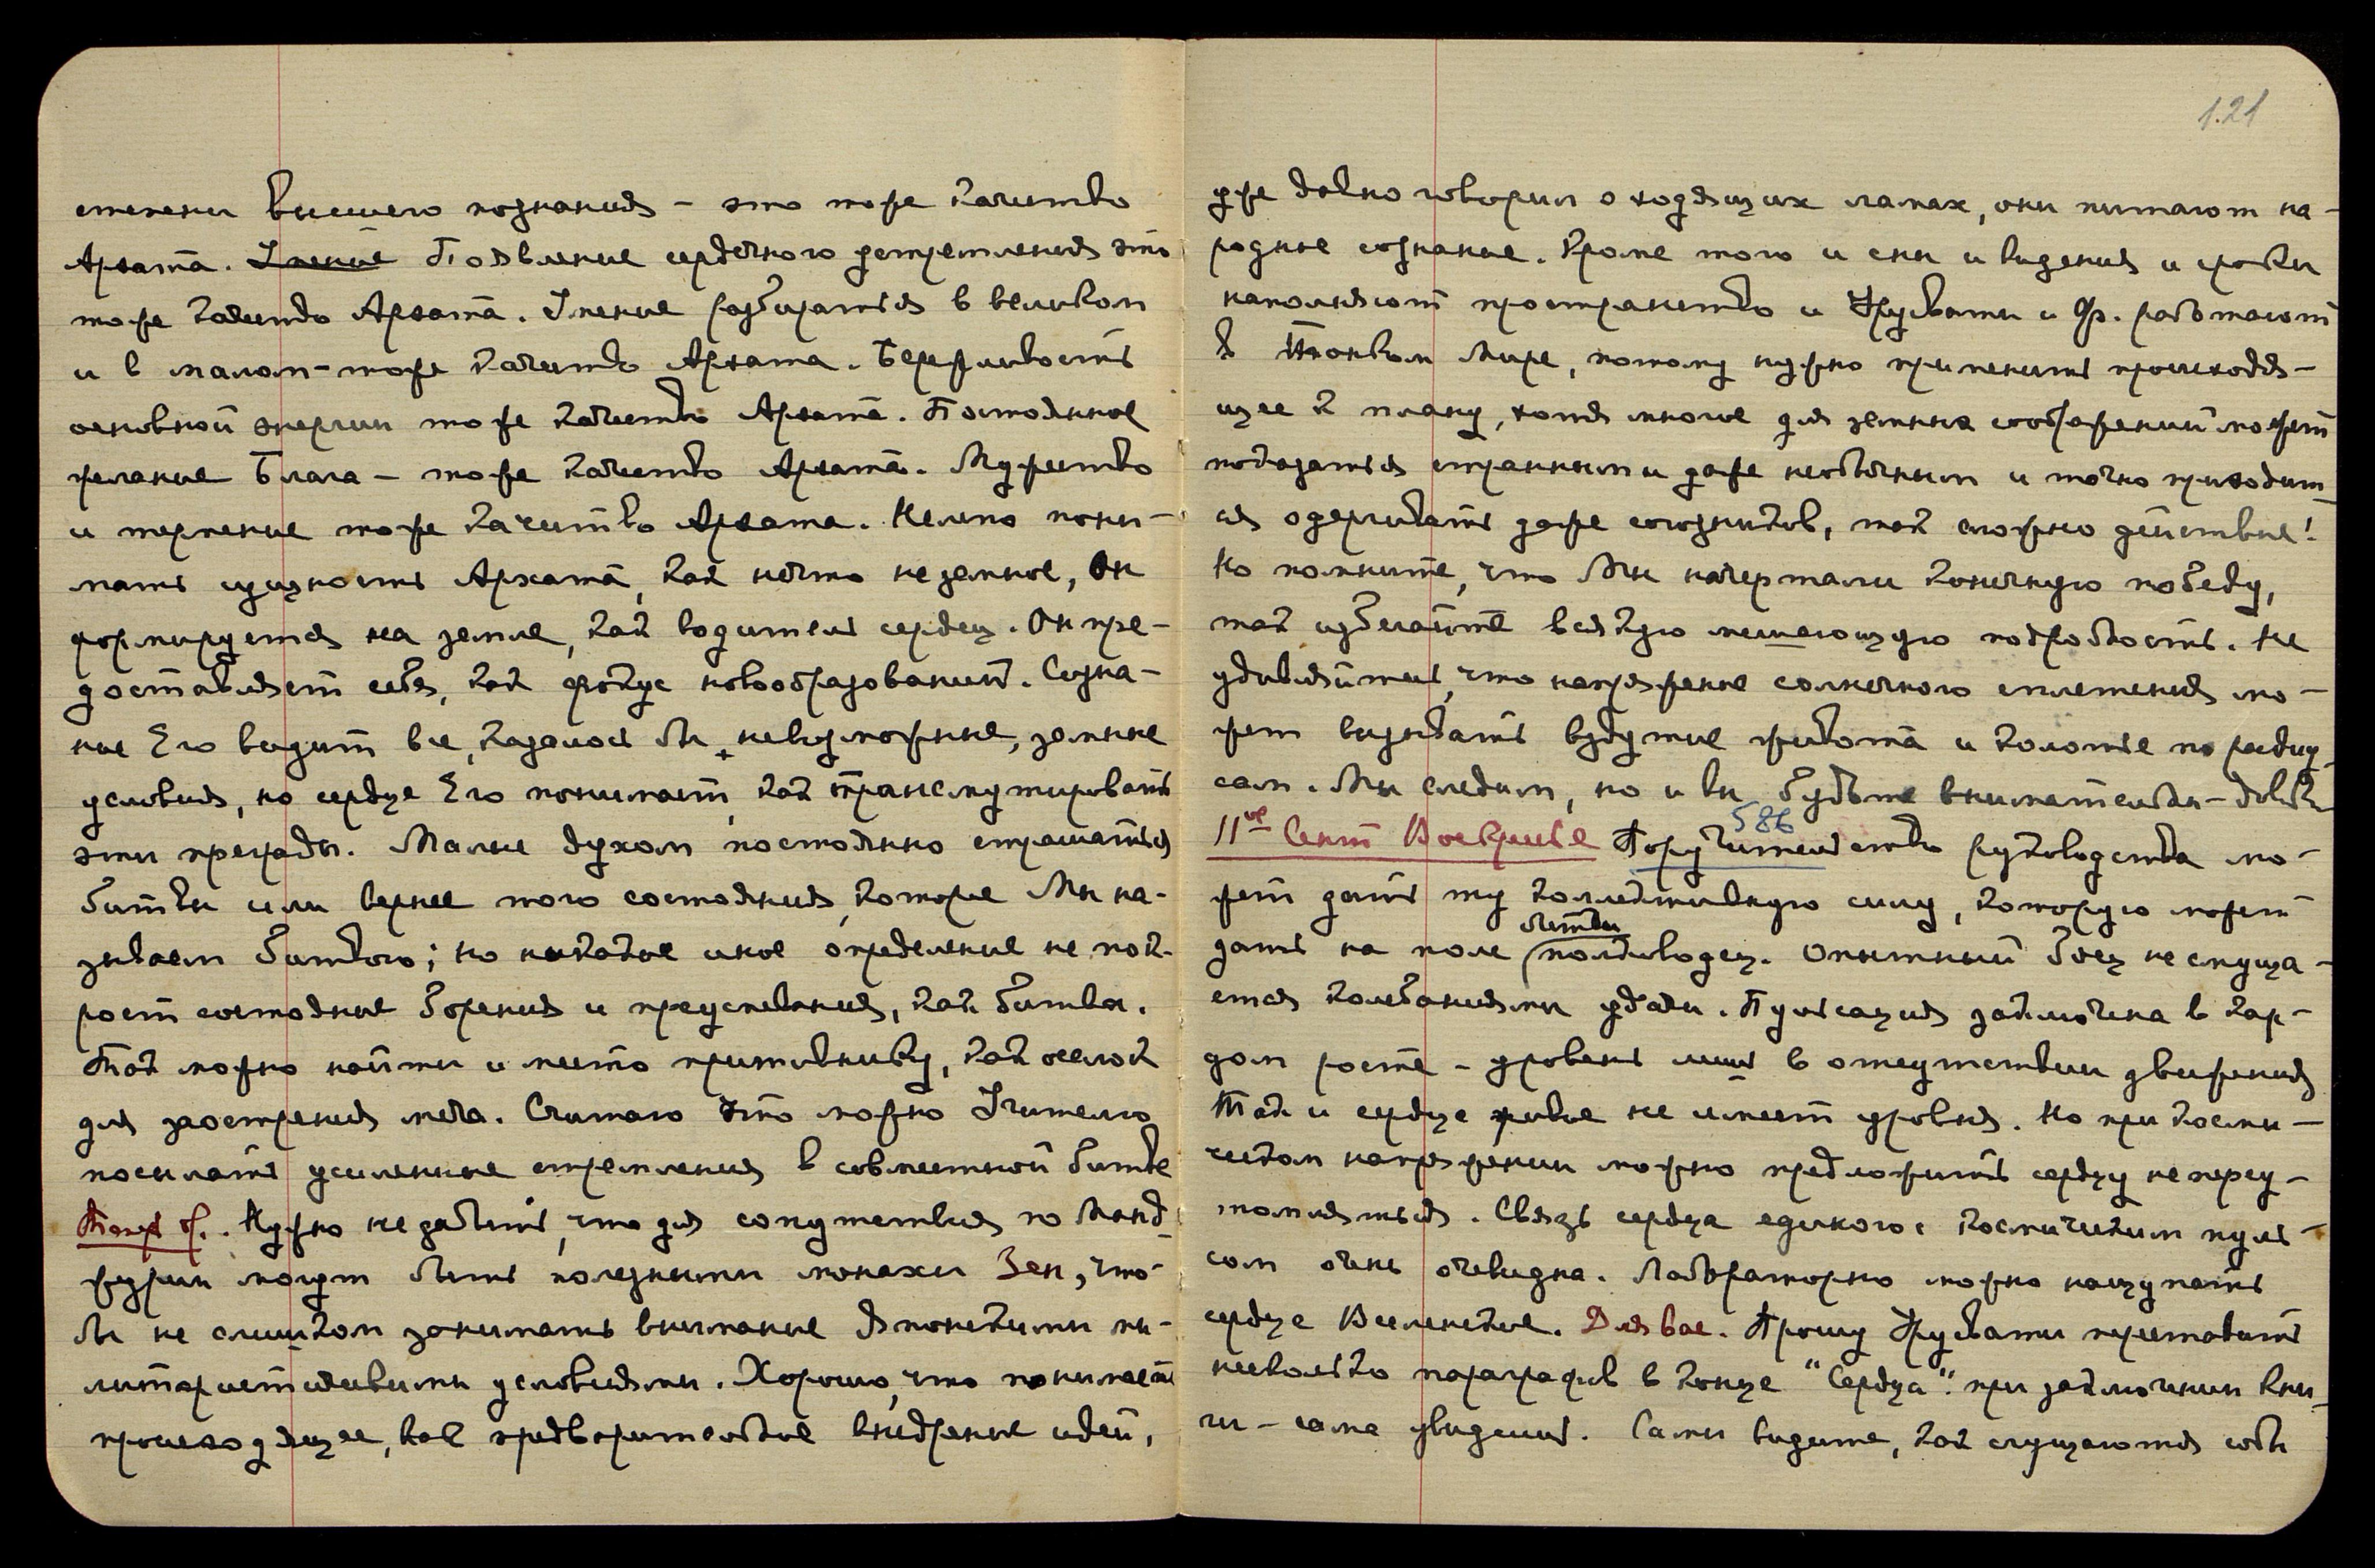 степени высшего познания – это тоже качество
Архата. Умение Появление сердечного устремления это
тоже качество Архата. Умение разбираться в великом
и в малом – тоже качество Архата. Бережливость
основной энергии тоже качество Архата. Постоянное
желание Блага – тоже качество Архата. Мужество
и терпение тоже качество Архата. Нельзя пони-
мать сущность Архата, как нечто неземное, Он
формируется на земле, как водитель сердец. Он пре-
доставляет себя, как фокус новообразований. Созна-
ние Его видит все, казалось бы, невозможные, земные
условия, но сердце Его понимает, как трансмутировать
эти преграды. Малые духом постоянно страшатся
битвы или вернее того состояния, которые Мы на-
зываем битвою; но никакое иное определение не пок-
роет состояние борения и преуспеяния, как битва.
Так можно найти и место противнику, как оселок
для заострения меча. Считаю это можно Учителю
посылать усиленные стремления в совместной битве
Теперь др.. Нужно не забыть, что для сопутствия по Манд-
журии могут быть полезными монахи Зен, что-
бы не слишком занимать внимание японскими ми-
литаристическими условиями. Хорошо, что понимаете
происходящее, как предварительное внедрение идей,
121
уже давно говорил о ходящих ламах, они питают на-
родные сознание. Кроме того и сны и видения и сроки
наполняют пространство и Урусвати и Ф. работают
в Тонком Мире, потому нужно применить происходя-
щее к плану, хотя многое для земных соображений может
показаться странным и даже необычным и точно приходит-
ся одергивать даже союзников, так сложно действие!
Но помните, что Мы начертали конечную победу,
так избегайте всякую мешающую подробность. Не
удивляйтесь, что напряжение солнечного сплетения мо-
жет вызывать вздутие живота и колотье по радиу-
сам. Мы следим, но и вы будьте внимательны – довольно
11ое Сент Воскрисье 586 Поручительство руководства мо-
жет дать ту коллективную силу, которую может
битвы
дать на поле полководец. Опытный боец не смуща-
ется колебаниями удачи. Пульсация заключена в каж-
дом росте – уровень лишь в отсутствии движения
Так и сердце живое не имеет уровня. Но при косми-
ческом напряжении можно предложить сердцу не переу-
томляться. Связь сердца единого с космическим пуль-
сом очень очевидна. Лабораторно можно нащупать
сердце Вселенское. Для вас. Прошу Урусвати переставить
несколько параграфов в конце "Сердца". при заключении кни-
ги – сама увидишь. Сами видите, как сгущаются собы